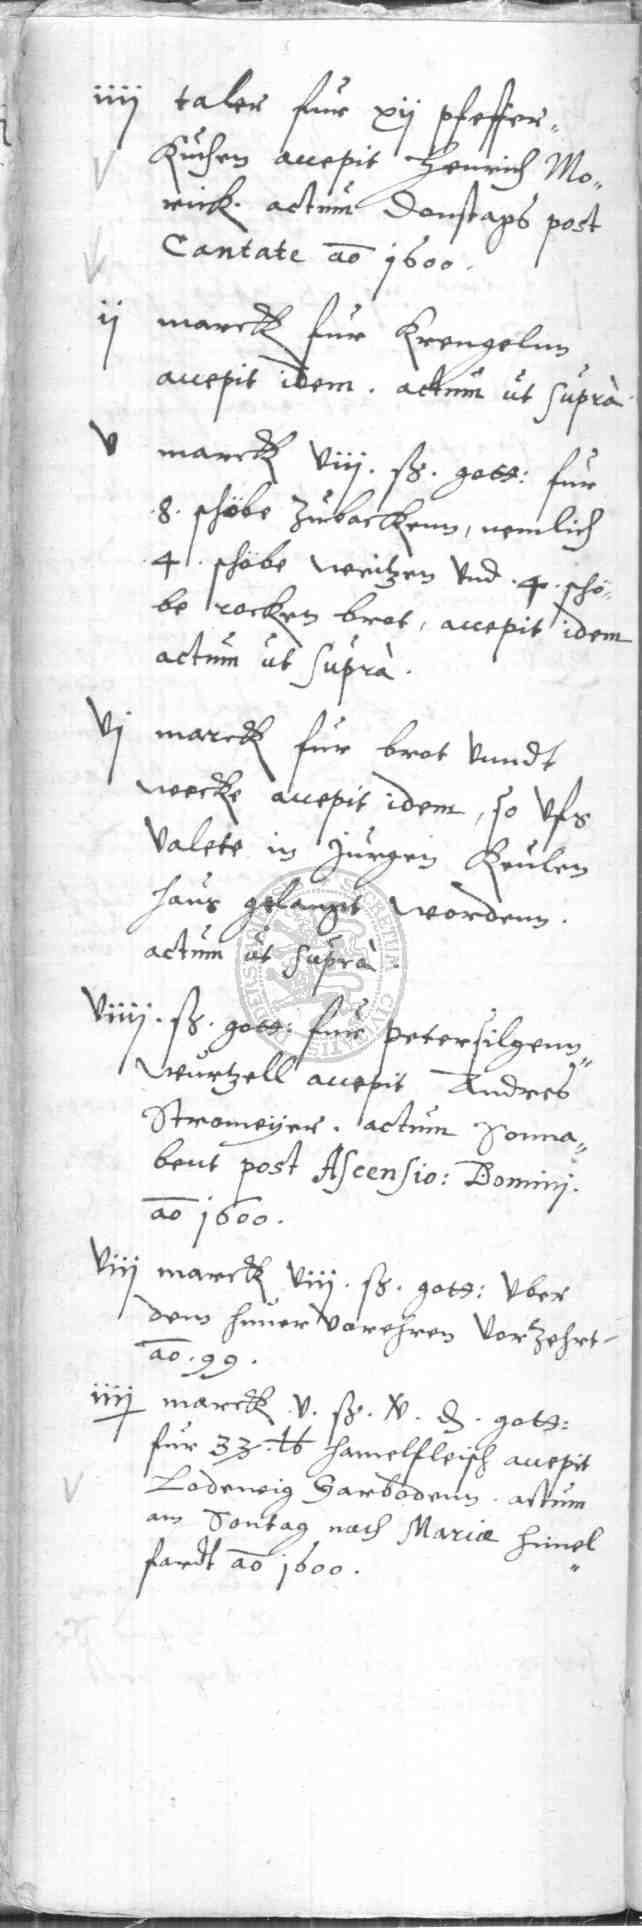 iiij taler fur xij pfeffer„
Kuchen accepit Henrich Mo„
rick. actum Donstags post
Cantate ao 1600.
ij marck fur Krengelnn
accepit idem. actum ut suprà.
v marck viij. ß. gott: fur
.8. schöbe zubackenn, nemlich
.4. schöbe weitzen vnd .4. schö„
be rocken brot, accepit idem
actum ut suprà.
vj marck fur brot vnndt
wecke accepit idem, so vfs
Valete in Jurgen Keulen
haus gelangt wordenn.
actum ut suprà.
viiij. ß. gott: fur petersilgenn„
wurtzell accepit Andres
Stromeijer. actum Sonna„
bent post Ascensio: Dominj.
ao 1600.
viij marck viij. ß. gott: vber
dem vorzehrt
ao .99.
iiij marck .v. ß. v. d. gott:
fur 33. lb hamelfleisch accepit
Lodewig Garbodenn. actum
am Sontag nach Mariæ himel„
fardt ao 1600.
SECRETUM CIVITATIS